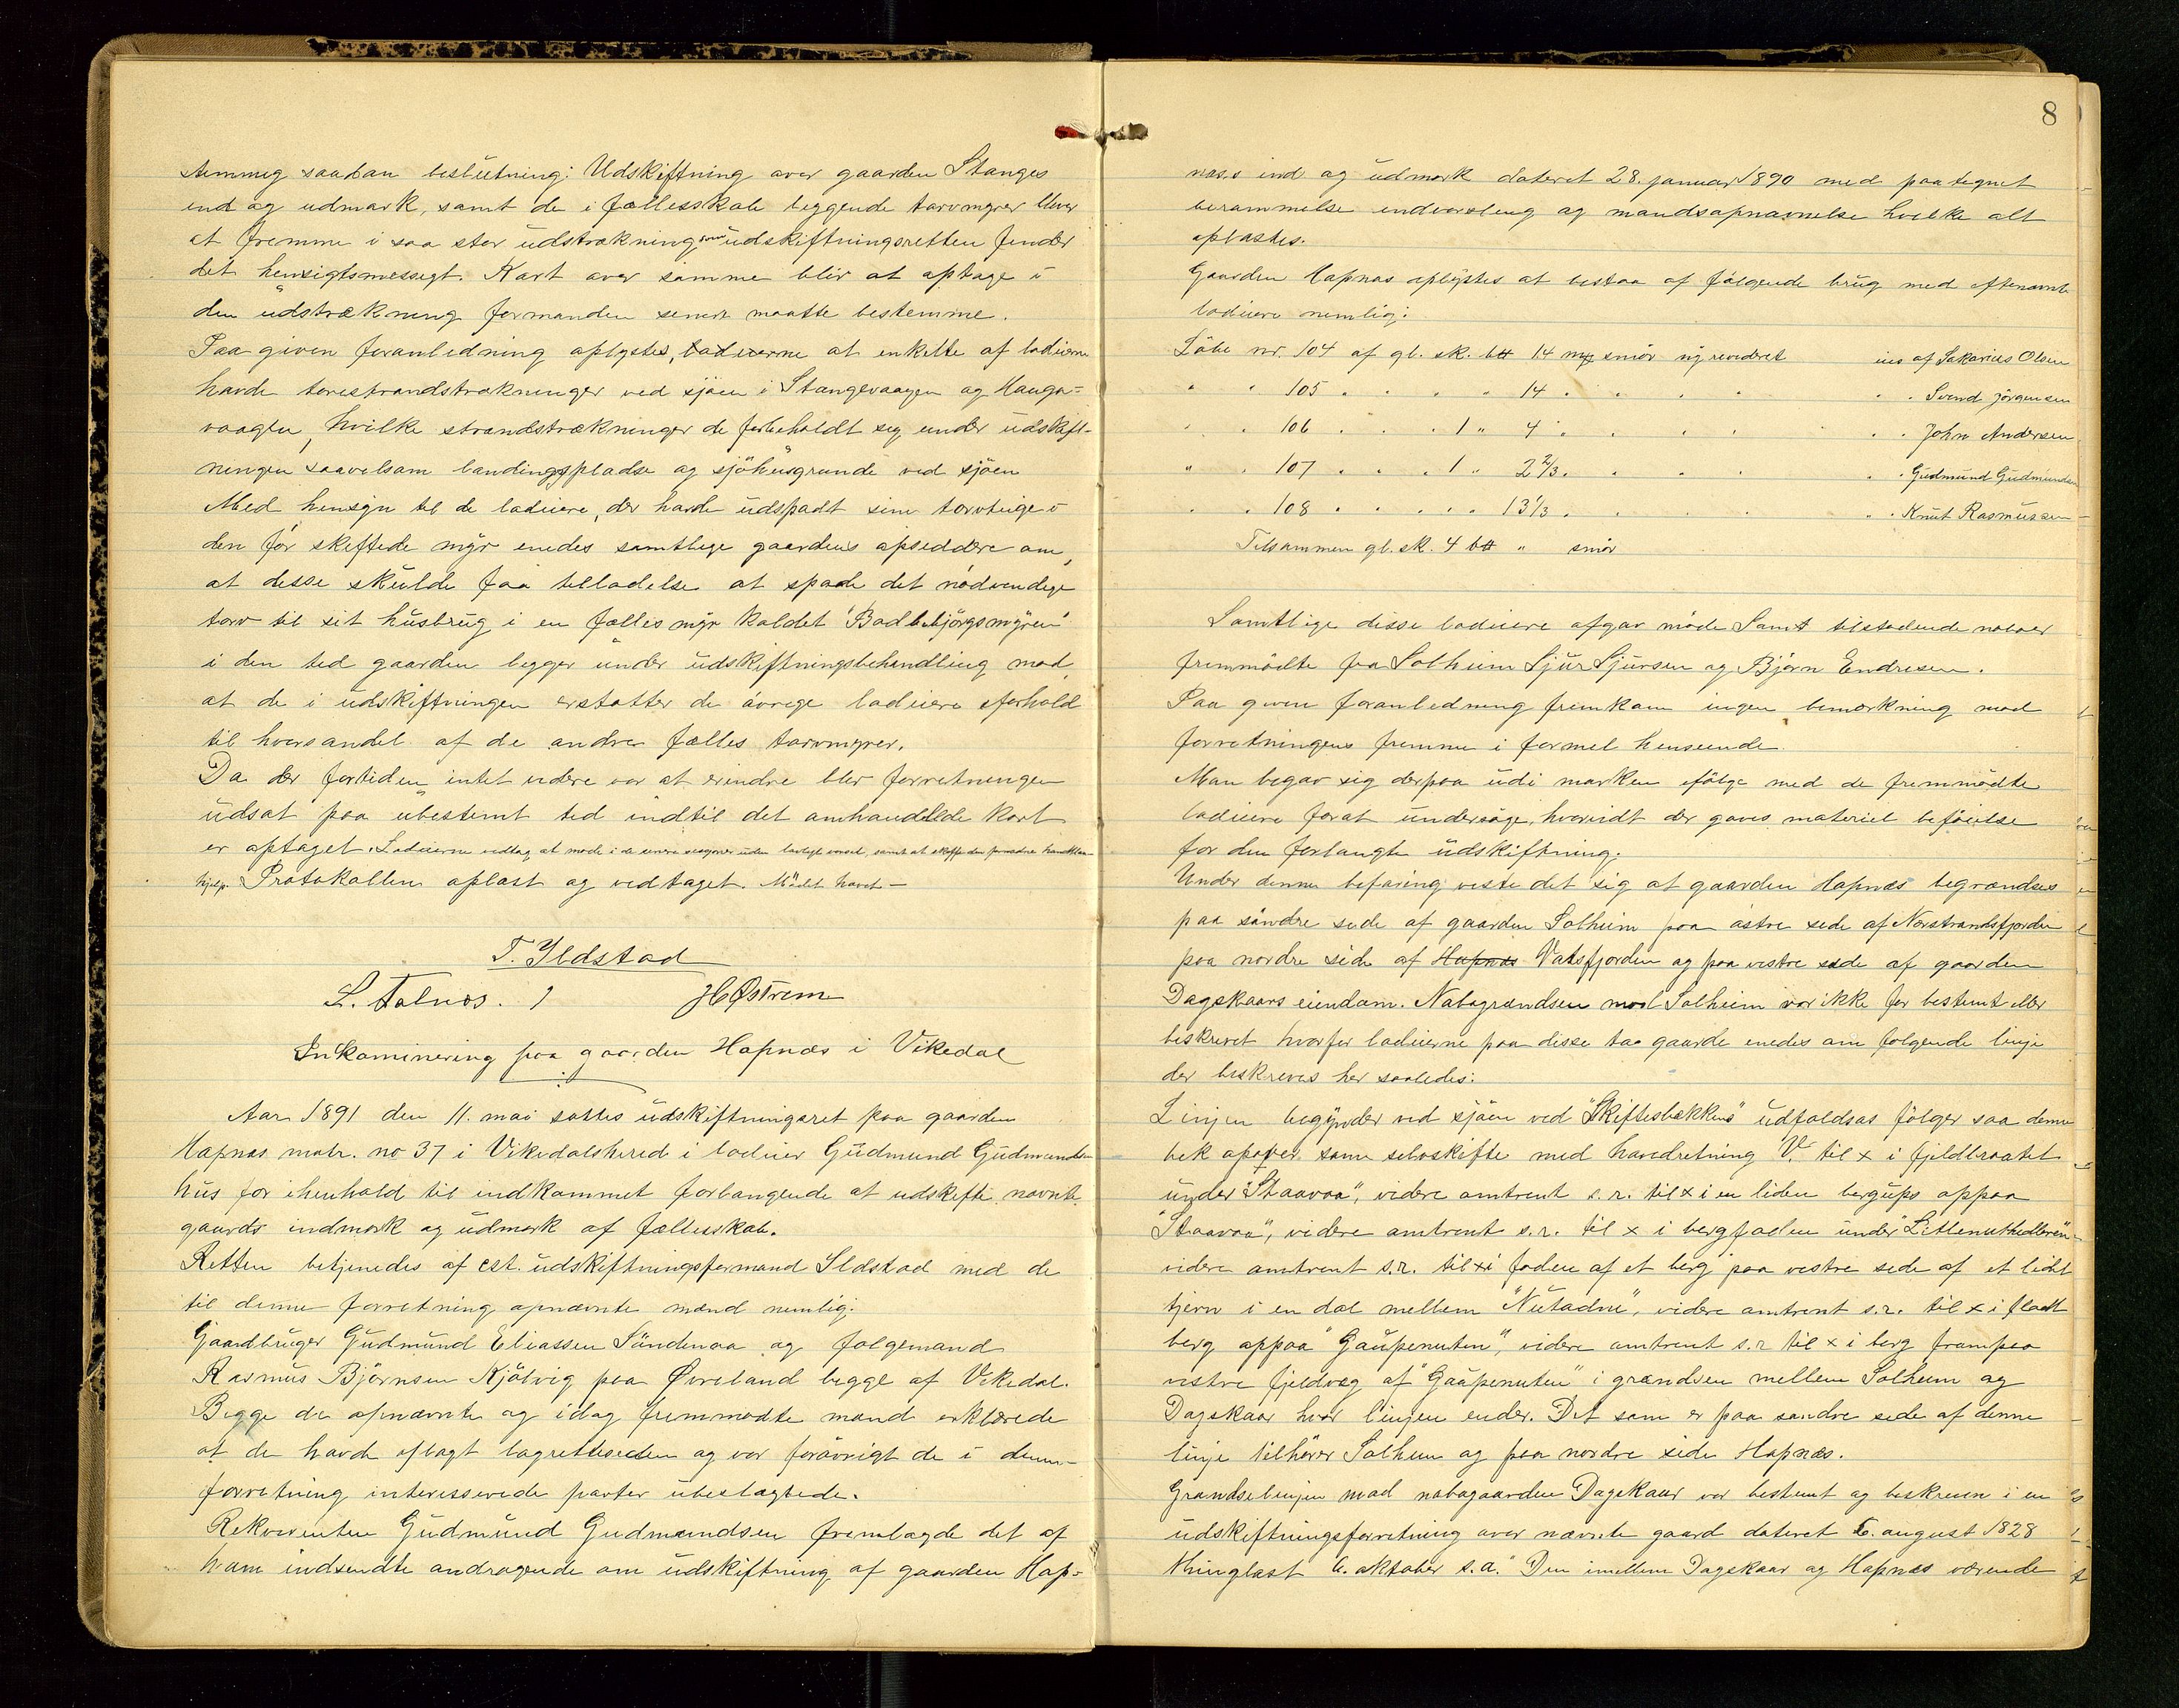 stemmig saadan beslutning: Udskiftning over gaarden Stanges
ind og udmark, samt de i fællesskab liggende torvmyrer bliver
at fremme i saa stor udstrækning som udskiftningsretten finder
det hensigtsmessigt. Kart over samme blir at optage i
den udstrækning formanden senere maatte bestemme.
Paa given foranledning oplystes, lodeierne at enkelte af lodeierne
havde torvestrandstrækninger ved sjøen i Stangevaagen og Hauga-
vaagen, hvilke strandstrækninger de forbeholdt sig under udskift-
ningen saavelsom landingspladse og sjøhusgrunde ved sjøen
Med hensyn til de lodeiere, der havde udspadt sine torvteige i
den før skiftede myr enedes samtlige gaardens opsiddere om,
at disse skulde faa tilladelse at spade det nødvendige
torv til sit husbrug i en fælles myr kaldet "Badbebjørgsmyren"
i den tid gaarden ligger under udskiftningsbehandling mod,
at de i udskiftningen erstatter de øvrige lodeiere i forhold
til hvers andel af de andre fælles torvmyrer.
Da der fortiden intet videre var at erindre blev forretningen
udsat paa ubestemt tid indtil det omhandelde kart
er optaget. Lodeierne vedtog at møde i de senere sesjoner uden lovligt varsel, samt at skaffe den fornødne haandtlan-
hjelp. Protokollen oplæst og vedtaget. Mødet hævet –
T. Ildstad
L. Talnes. / H Østrem
Inkaminering paa gaarden Hapnæs i Vikedal
Aar 1891 den 11. mai sattes udskiftningsret paa gaarden
Hapnæs matr. no 37 i Vikedalsherred i lodeier Gudmund Gudmunds-
hus for i henhold til indkommet forlangende at udskifte nævnte
gaards indmark og udmark af fællesskab.
Retten betjenedes af cst. udskiftningsformand Ildstad med de
til denne forretning opnævnte mænd nemlig:
Gaardbruger Gudmund Eliassen Søndenaa og folgemand
Rasmus Bjørnsen Kjølvig paa Øvreland begge af Vikedal.
Begge de opnævnte og idag fremmødte mænd erklærede
at de havde aflagt lagretteseden og var forøvrigt de i denne
forretning interesserede parter ubeslægtede.
Rekvirenten Gudmund Gudmundsen fremlagde det af
ham indsendte andragende om udskiftning af gaarden Hap-
8
næs.s ind og udmark dateret 28. januar 1890 med paategnet
berammelse indvarsling og mandsopnævnelse hvilke alt
oplæstes.
Gaarden Hapnæs oplystes at bestaa af følgende brug med eftenævnte
lodeiere nemlig:
Løbe nr. 104 af gl. sk. btt 14 mrk smør ny revideret eies af Sakarias Olsen
" " 105 " " " " 14 " " " " " " Svend Jørgensen
" " 106 " " " 1 " 4 " " " " " " John Andersen
" " 107 " " " 1 " 2 2/3 " " " " " Gudmund Gudmundsen
" " 108 " " " " " 13 1/3 " " " " " Knut Rasmussen
Tilsammen gl. sk. 4 btt " smør
Samtlige disse lodeiere afgav møde Samt tilstødende naboer
fremmødte fra Solheim Sjur Sjursen og Bjørn Endresen.
Paa given foranledning fremkom ingen bemerkning mod
forretningens fremme i formel henseende.
Man begav sig derpaa udi marken ifølge med de fremmødte
lodeiere forat undersøge, hvorvidt der gaves materiel beføielse
for den forlangte udskiftning.
Under denne befaring viste det sig at gaarden Hapnæs begrændses
paa søndre side af gaarden Solheim paa østre side af Nærstrandsfjorden
paa nordre side af Hapnæs Vatsfjorden og paa vestre side af gaarden
Dagskaars eiendom. Nabogrændsen mod Solheim var ikke før bestemt eller
beskrevet hvorfor lodeierne paa disse to gaarde enedes om følgende linje
der beskreves her saaledes:
Linjen begynder ved sjøen ved "Skiftesbækkens" udfaldsos følger saa denne
bek opover som selvskifte med hovedretning V. til x i fjeldbraatet
under "Staavaa", videre omtrent s.r. til x i en liden bergups oppaa
"Staavaa", videre omtrent s.r. til x i bergfoden under "Litlenuthedleren"
videre omtrent s.r. til x i foden af et berg paa vestre side af et lidet
tjern i en dal mellem "Nutadne", videre omtrent s.r. til x i fladt
berg oppaa "Gaupenuten", videre omtrent s.r. til x i berg frampaa
vestre fjeldvæg af "Gaupenuten" i grændsen mellem Solheim og
Dagskaar hvor linjen ender. Det som er paa søndre side af denne
linje tilhører Solheim og paa nordre side Hapnæs.
Grændselinjen mod nabogaarden Dagskaar var bestemt og beskreven i en
udskiftningsforretning over nævnte gaard dateret 6. august 1828
thinglæst 6. oktober s.a. "Den imellem Dagskaar og Hapnæs værende